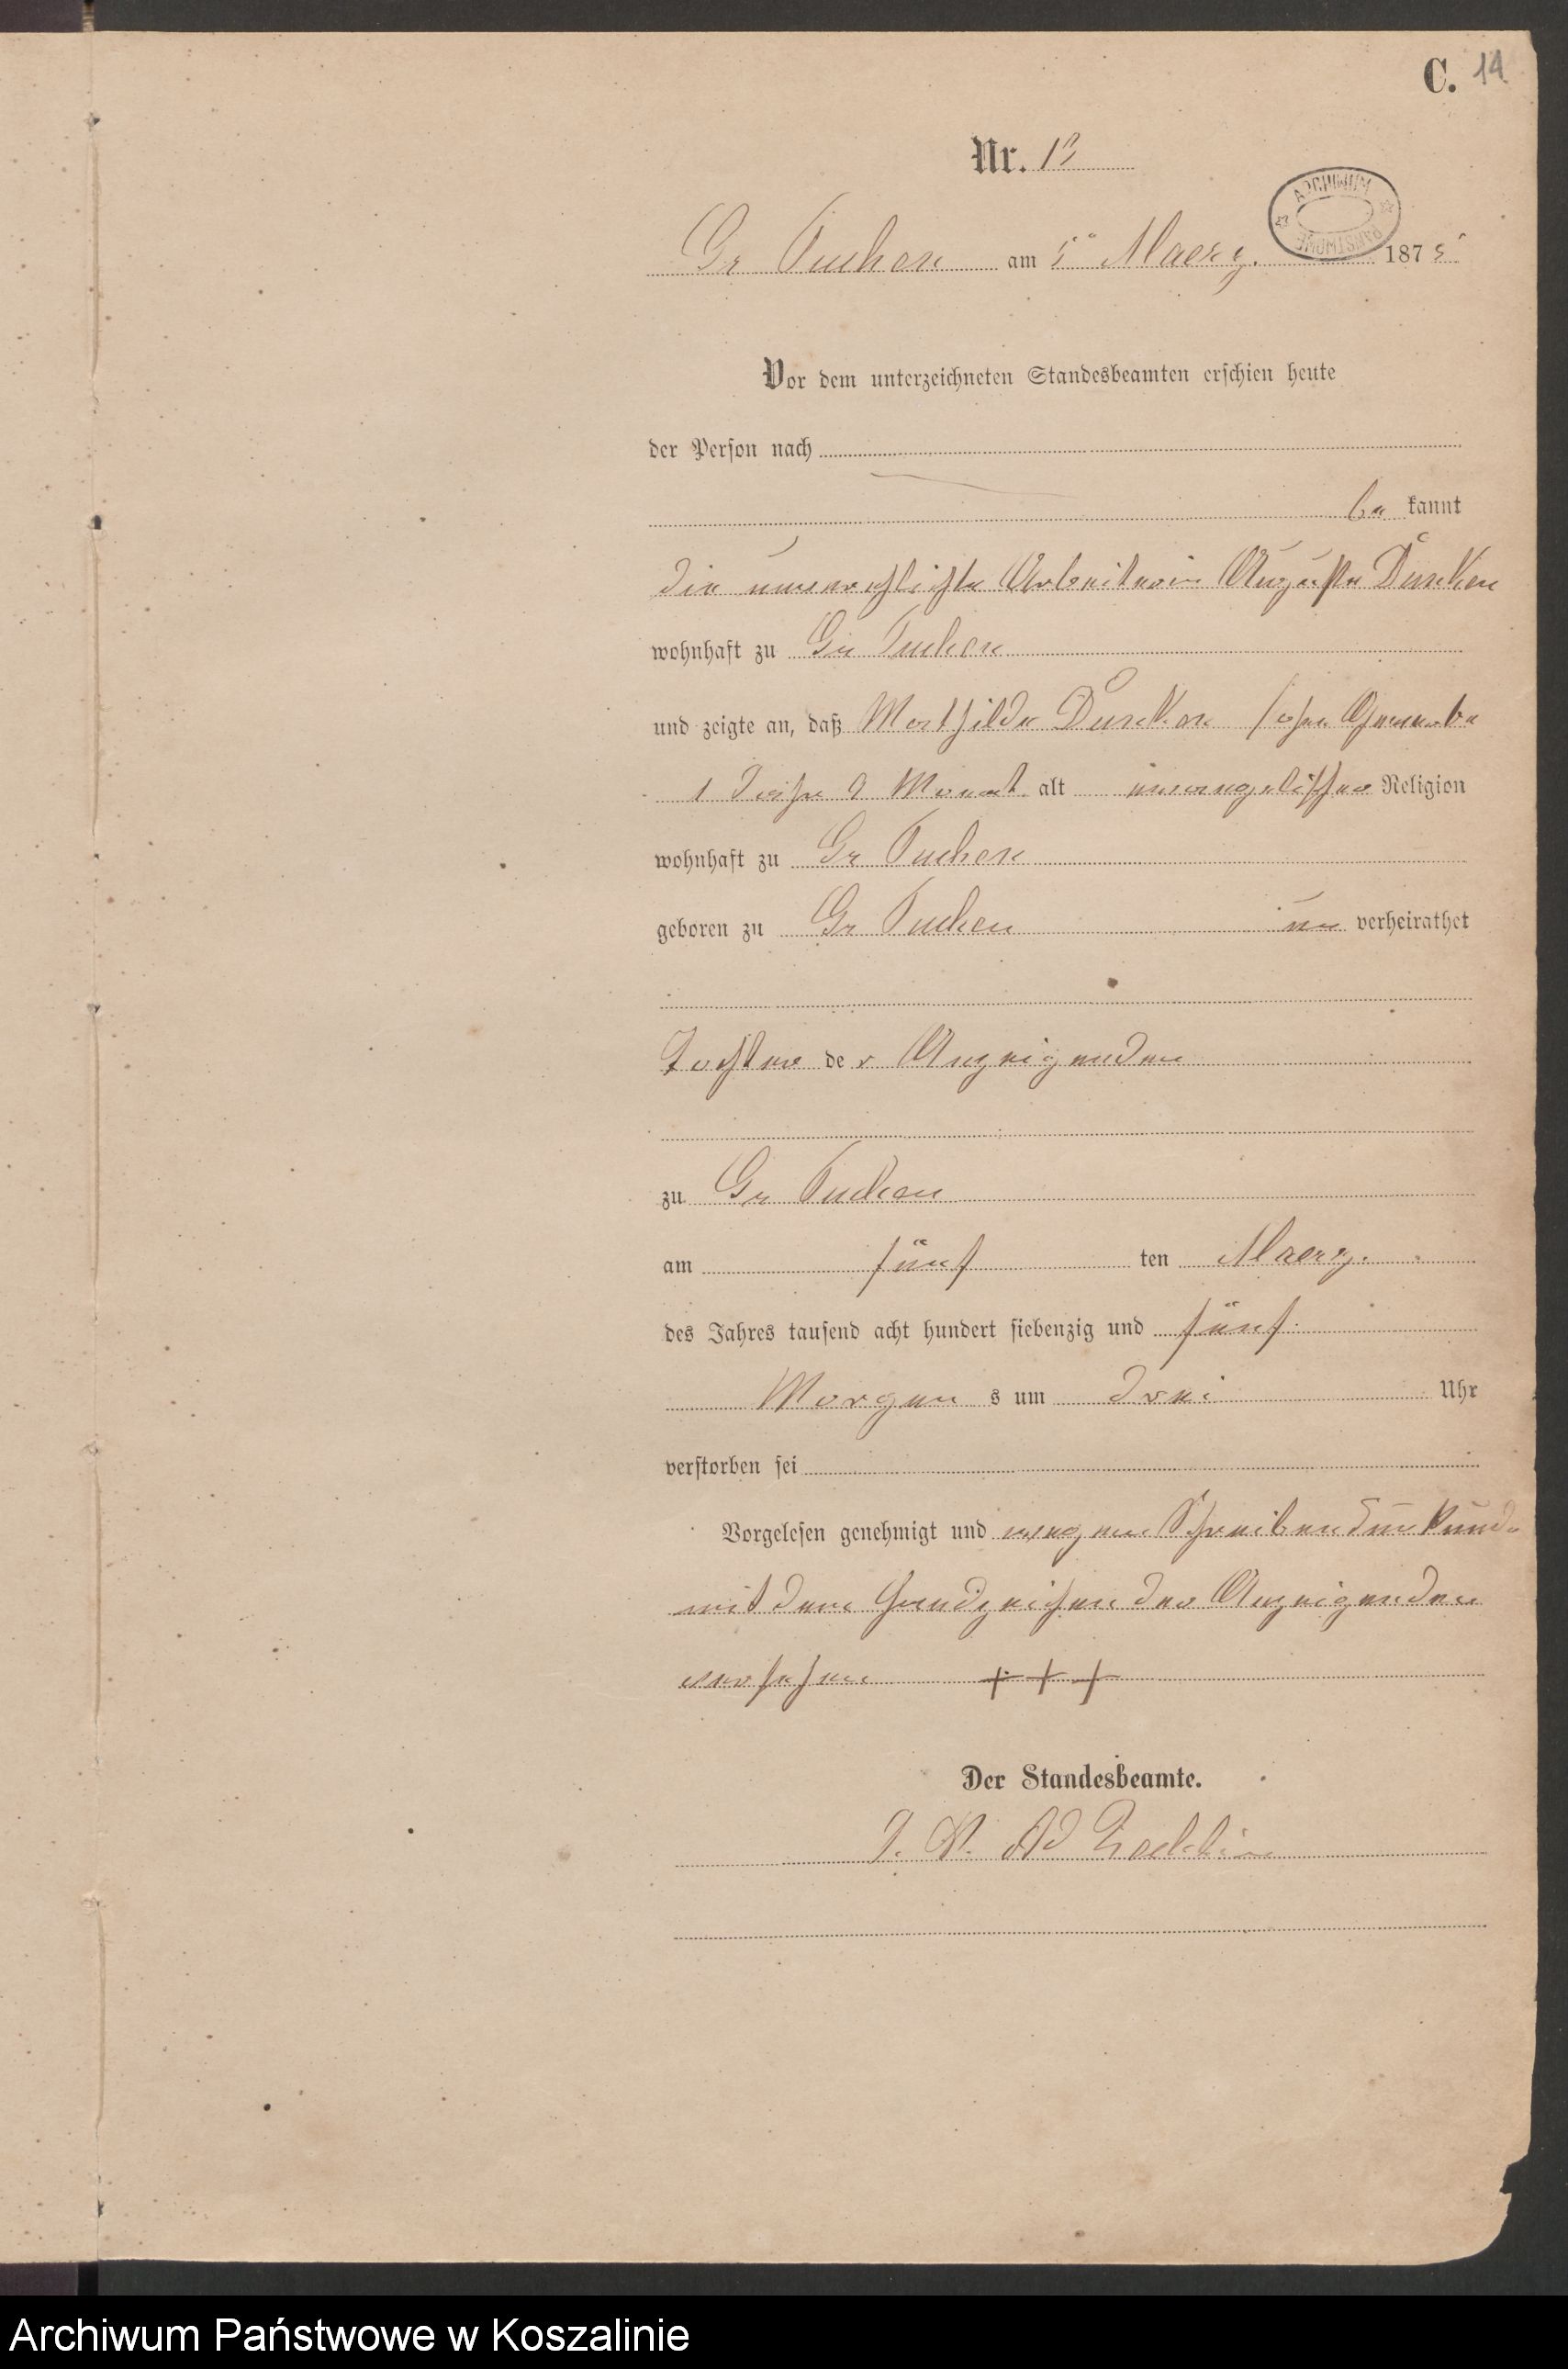 C. 14
Nr. 13
ARCHIWUM PAŃSTWOWE
Gr Tuchen am 5ten Maerz. 1875
Vor dem unterzeichneten Standesbeamten erschien heute
der Person nach
be kannt
die unverehlichte Arbeiterin Auguste
wohnhaft zu Gr Tuchen
und zeigte an, daß Mathilde ohne Gewerbe
1 Jahr 9 Monat alt evangelischer Religion
wohnhaft zu Gr Tuchen
geboren zu Gr Tuchen un verheirathet
Tochter de r Anzeigenden
zu Gr Tuchen
am fünf ten Maerz.
des Jahres tausend acht hundert siebenzig und fünf
Morgen s um drei Uhr
verstorben sei
Vorgelesen genehmigt und wegen Schreibensunkunde
mit dem Handzeichen der Anzeigenden
versehen + + +
Der Standesbeamte.
J. V.
Archiwum Państwowe w Koszalinie